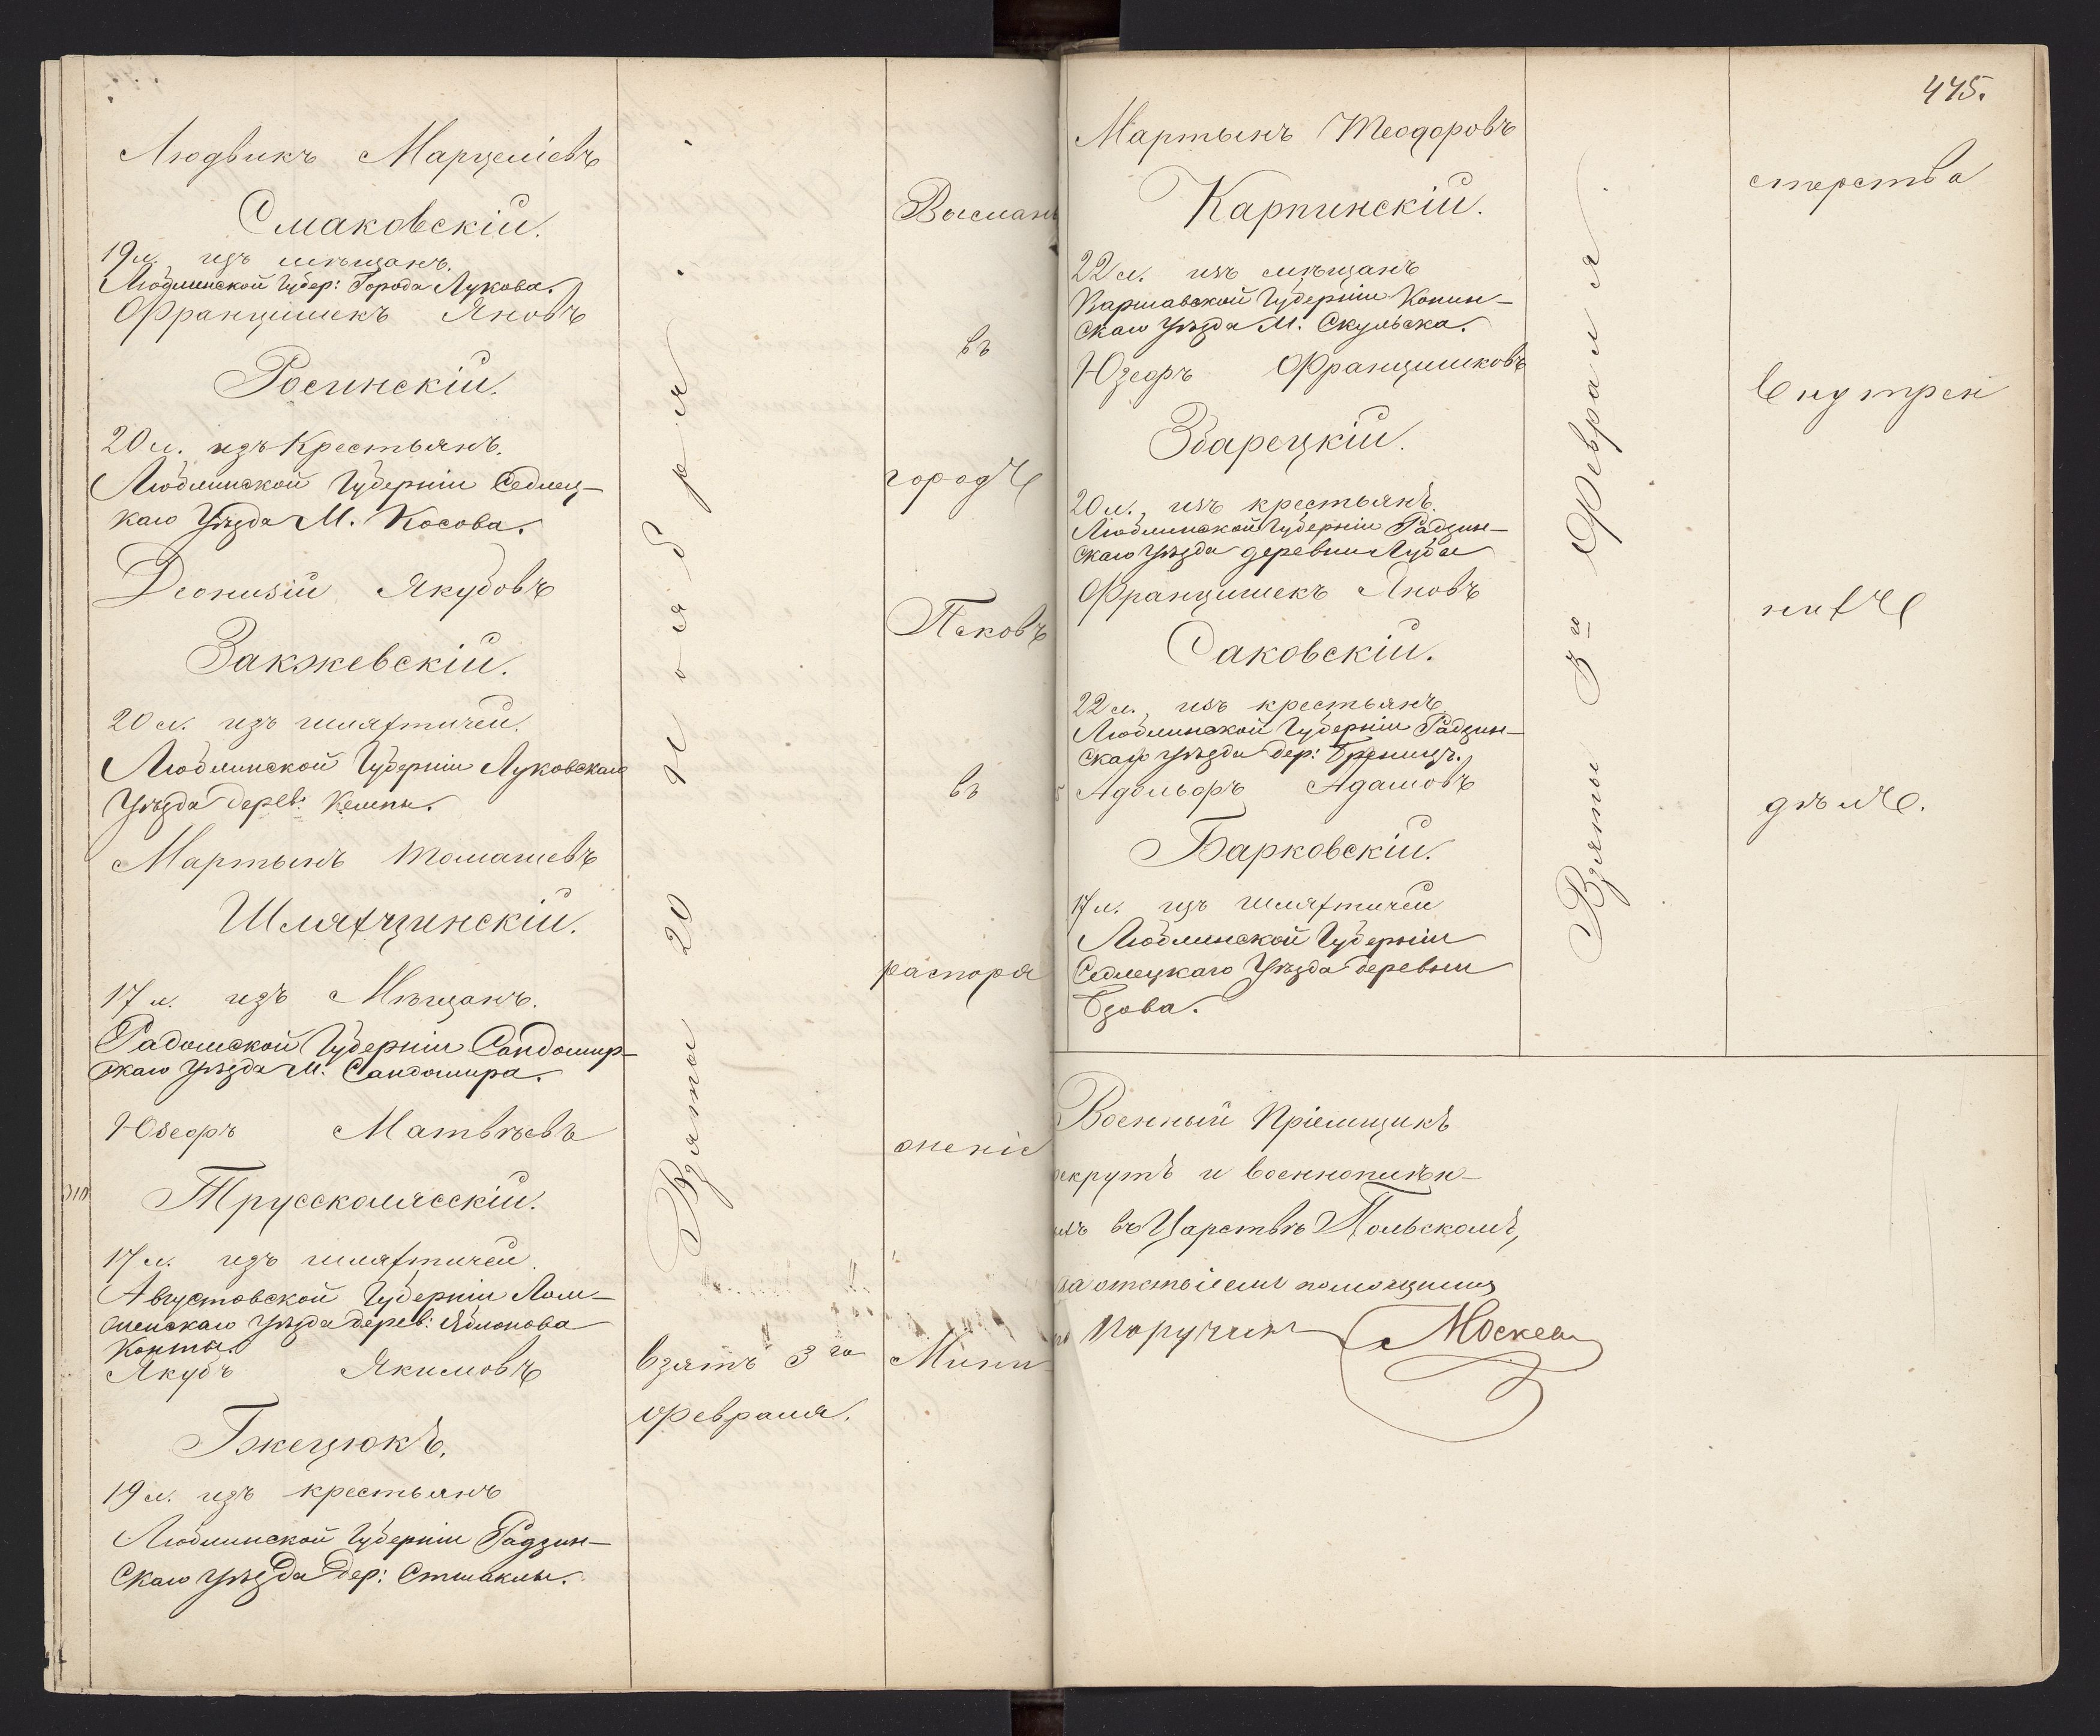 Людвикъ Марцеліевъ
Смаковскій.
19 л. изъ мѣщанъ.
Люблинской Губер: Города Лукова.
Францишекъ Яновъ
Росинскій.
20 л. изъ Крестьянъ.
Люблинской Губерніи Седлец-
каго Уѣзда М. Косова.
Діонизій Якубовъ
Закжевскій.
20 л. изъ шляхтичей.
Люблинской Губерніи Луковскаго
Уѣзда дерев: Кемпы.
Мартынъ Томашевъ
Шляхцинскій.
17 л. изъ Мѣщанъ.
Радомской Губерніи Сандомир-
скаго Уѣзда М. Сандомира.
Юзефъ Матвѣевъ
Трусколясскій.
17 л. изъ шляхтичей.
Августовской Губерніи Лом-
женскаго Уѣзда дерев: Яблонова
Конты.
Якубъ Якимовъ
Гжецюкъ.
19 л. изъ крестьянъ
Люблинской Губерніи Радзин-
скаго Уѣзда дер: Стшаклы.
Взяты 20 Ноября
взятъ 3го
Февраля.
Высланы
въ
городъ
Псковъ
въ
распоря
женіе
Мини-
445.
Мартынъ Теодоровъ
Карпинскій.
22 л. изъ мѣщанъ
Варшавской Губерніи Конин-
скаго Уѣзда М. Скульска.
Юзефъ Францишковъ
Зварецкій.
20 л. изъ крестьянъ.
Люблинской Губерніи Радзин-
скаго Уѣзда деревни
Францишекъ Яновъ
Саковскій.
22 л. изъ крестьянъ.
Люблинской Губерніи Радзин-
скаго Уѣзда дер:
Адольфъ Адамовъ
Барковскій.
17 л. изъ шляхтичей
Люблинской Губерніи
Седлецкаго Уѣзда деревни
Взяты 3го Февраля
стерства
Внутрен
нихъ
дѣлъ.
Военный Пріемщикъ
рекрутъ и военноплѣн-
ныхъ въ Царствѣ Польскомъ,
помощникъ
Поручикъ